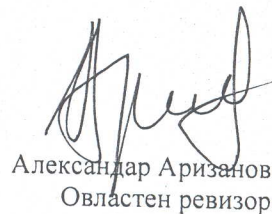 Александар Аризанов
Овластен ревизор